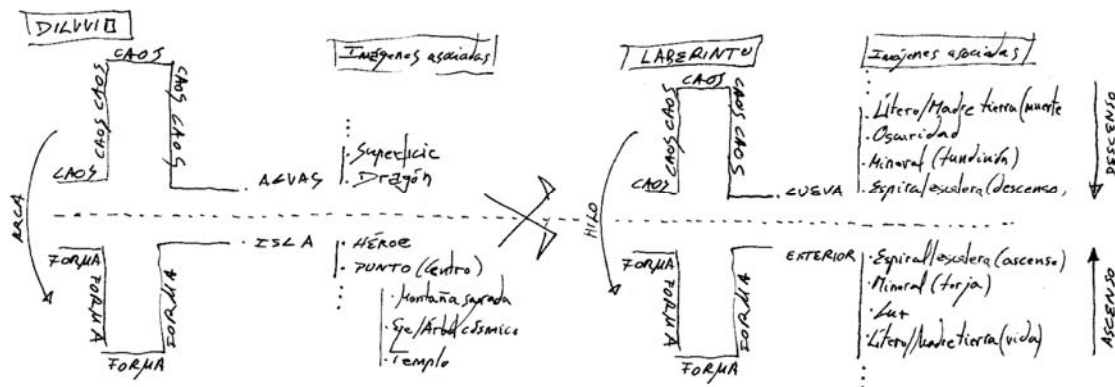 DILUVIO
CAOS
CAOS CAOS
CAOS CAOS
CAOS
ARCA
FORMA
FORMA
FORMA
FORMA
Imágenes asociadas
...
· Superficie
· Dragón
· AGUAS
· ISLA
· HÉROE
· PUNTO (Centro)
· Montaña sagrada
· Eje/Árbol cósmico
· Templo
...
LABERINTO
CAOS
CAOS CAOS
CAOS CAOS
CAOS
HILO
FORMA
FORMA
FORMA
FORMA
Imágenes asociadas
...
· Útero/Madre tierra (muerte
· Oscuridad
· Mineral (fundición)
· Espiral/escalera (descenso,
· CUEVA
EXTERIOR
· Espiral/escalera (ascenso)
· Mineral (forja)
· Luz
· Útero/Madre tierra (vida)
...
DESCENSO
ASCENSO